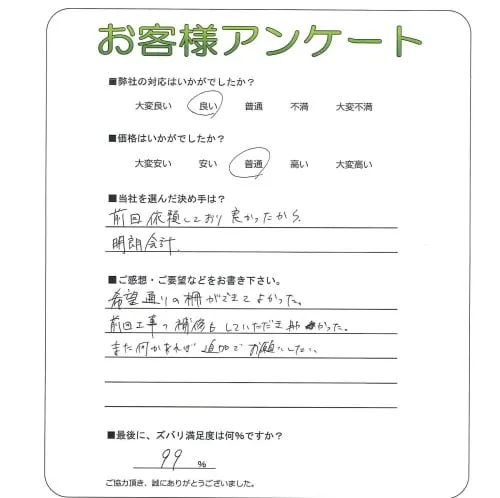 お客様アンケート
■弊社の対応はいかがでしたか？
大変良い 良い 普通 不満 大変不満
■価格はいかがでしたか？
大変安い 安い 普通 高い 大変高い
■当社を選んだ決め手は？
前回依頼しており良かったから.
明朗会計.
■ご感想・ご要望などをお書き下さい。
希望通りの棚ができてよかった。
前回工事の補修もしていただき かった。
また何かあれば追加でお願いしたい.
■最後に、ズバリ満足度は何%ですか？
99 %
ご協力頂き、誠にありがとうございました。